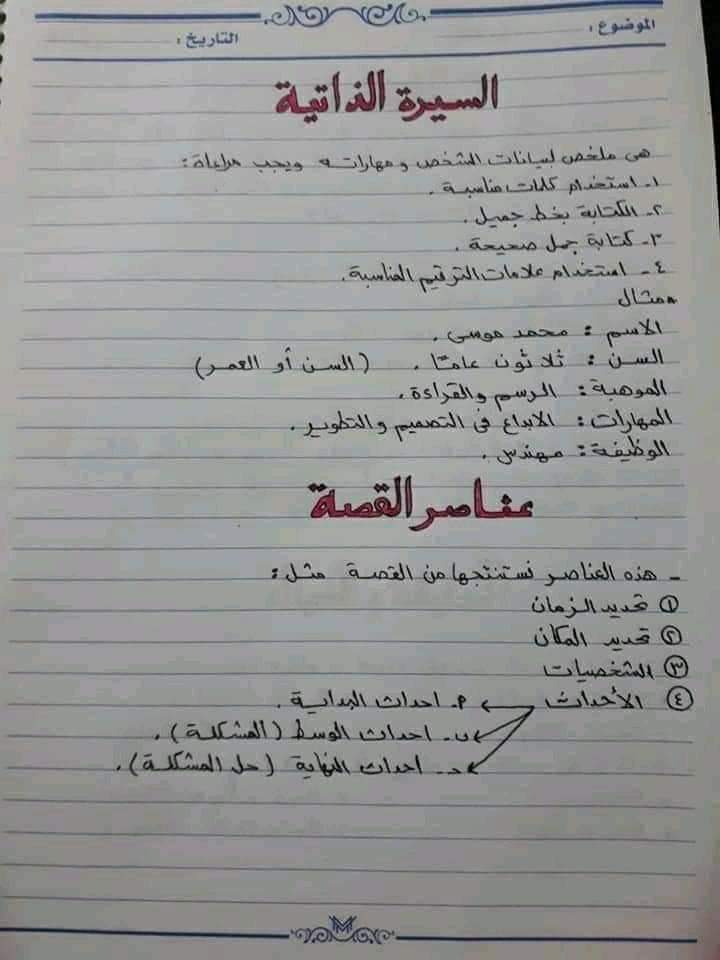 الموضوع :
التاريخ :
السيرة الذاتية
هى ملخص لبيانات الشخص ومهاراته ويجب مراعاة :
١- استخدام كلمات مناسبة .
٢- الكتابة بخط جميل .
٣- كتابة جمل صحيحة .
٤- استخدام علامات الترقيم المناسبة .
* مثال
الاسم : محمد موسى .
السن : ثلاثون عامًا . (السن أو العمر)
الموهبة : الرسم والقراءة .
المهارات : الابداع فى التصميم والتطوير .
الوظيفة : مهندس .
عناصر القصة
- هذه العناصر نستنتجها من القصة مثل :
① تحديد الزمان
② تحديد المكان
③ الشخصيات
④ الأحداث ← أ- احداث البداية .
ب- احداث الوسط (المشكلة) .
ج- احداث النهاية (حل المشكلة) .